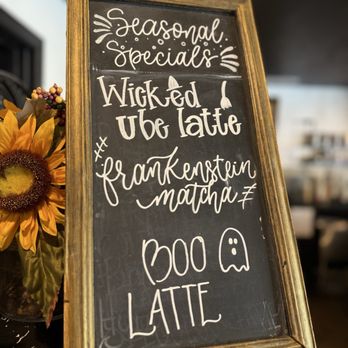 Seasonal
Specials
Wicked
ube latte
frankenstein
matcha
BOO
LATTE